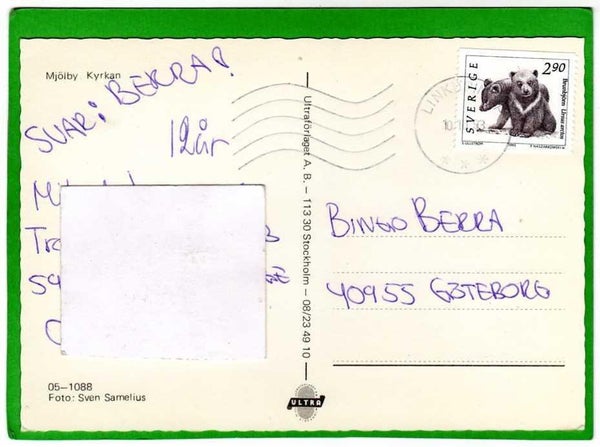 Mjölby Kyrkan
SVAR: BERRA!
12år
05-1088
Foto: Sven Samelius
Ultraförlaget A. B. – 113 30 Stockholm – 08/23 49 10
ULTRA
SVERIGE
2.90
BINGO BERRA
40955 GÖTEBORG